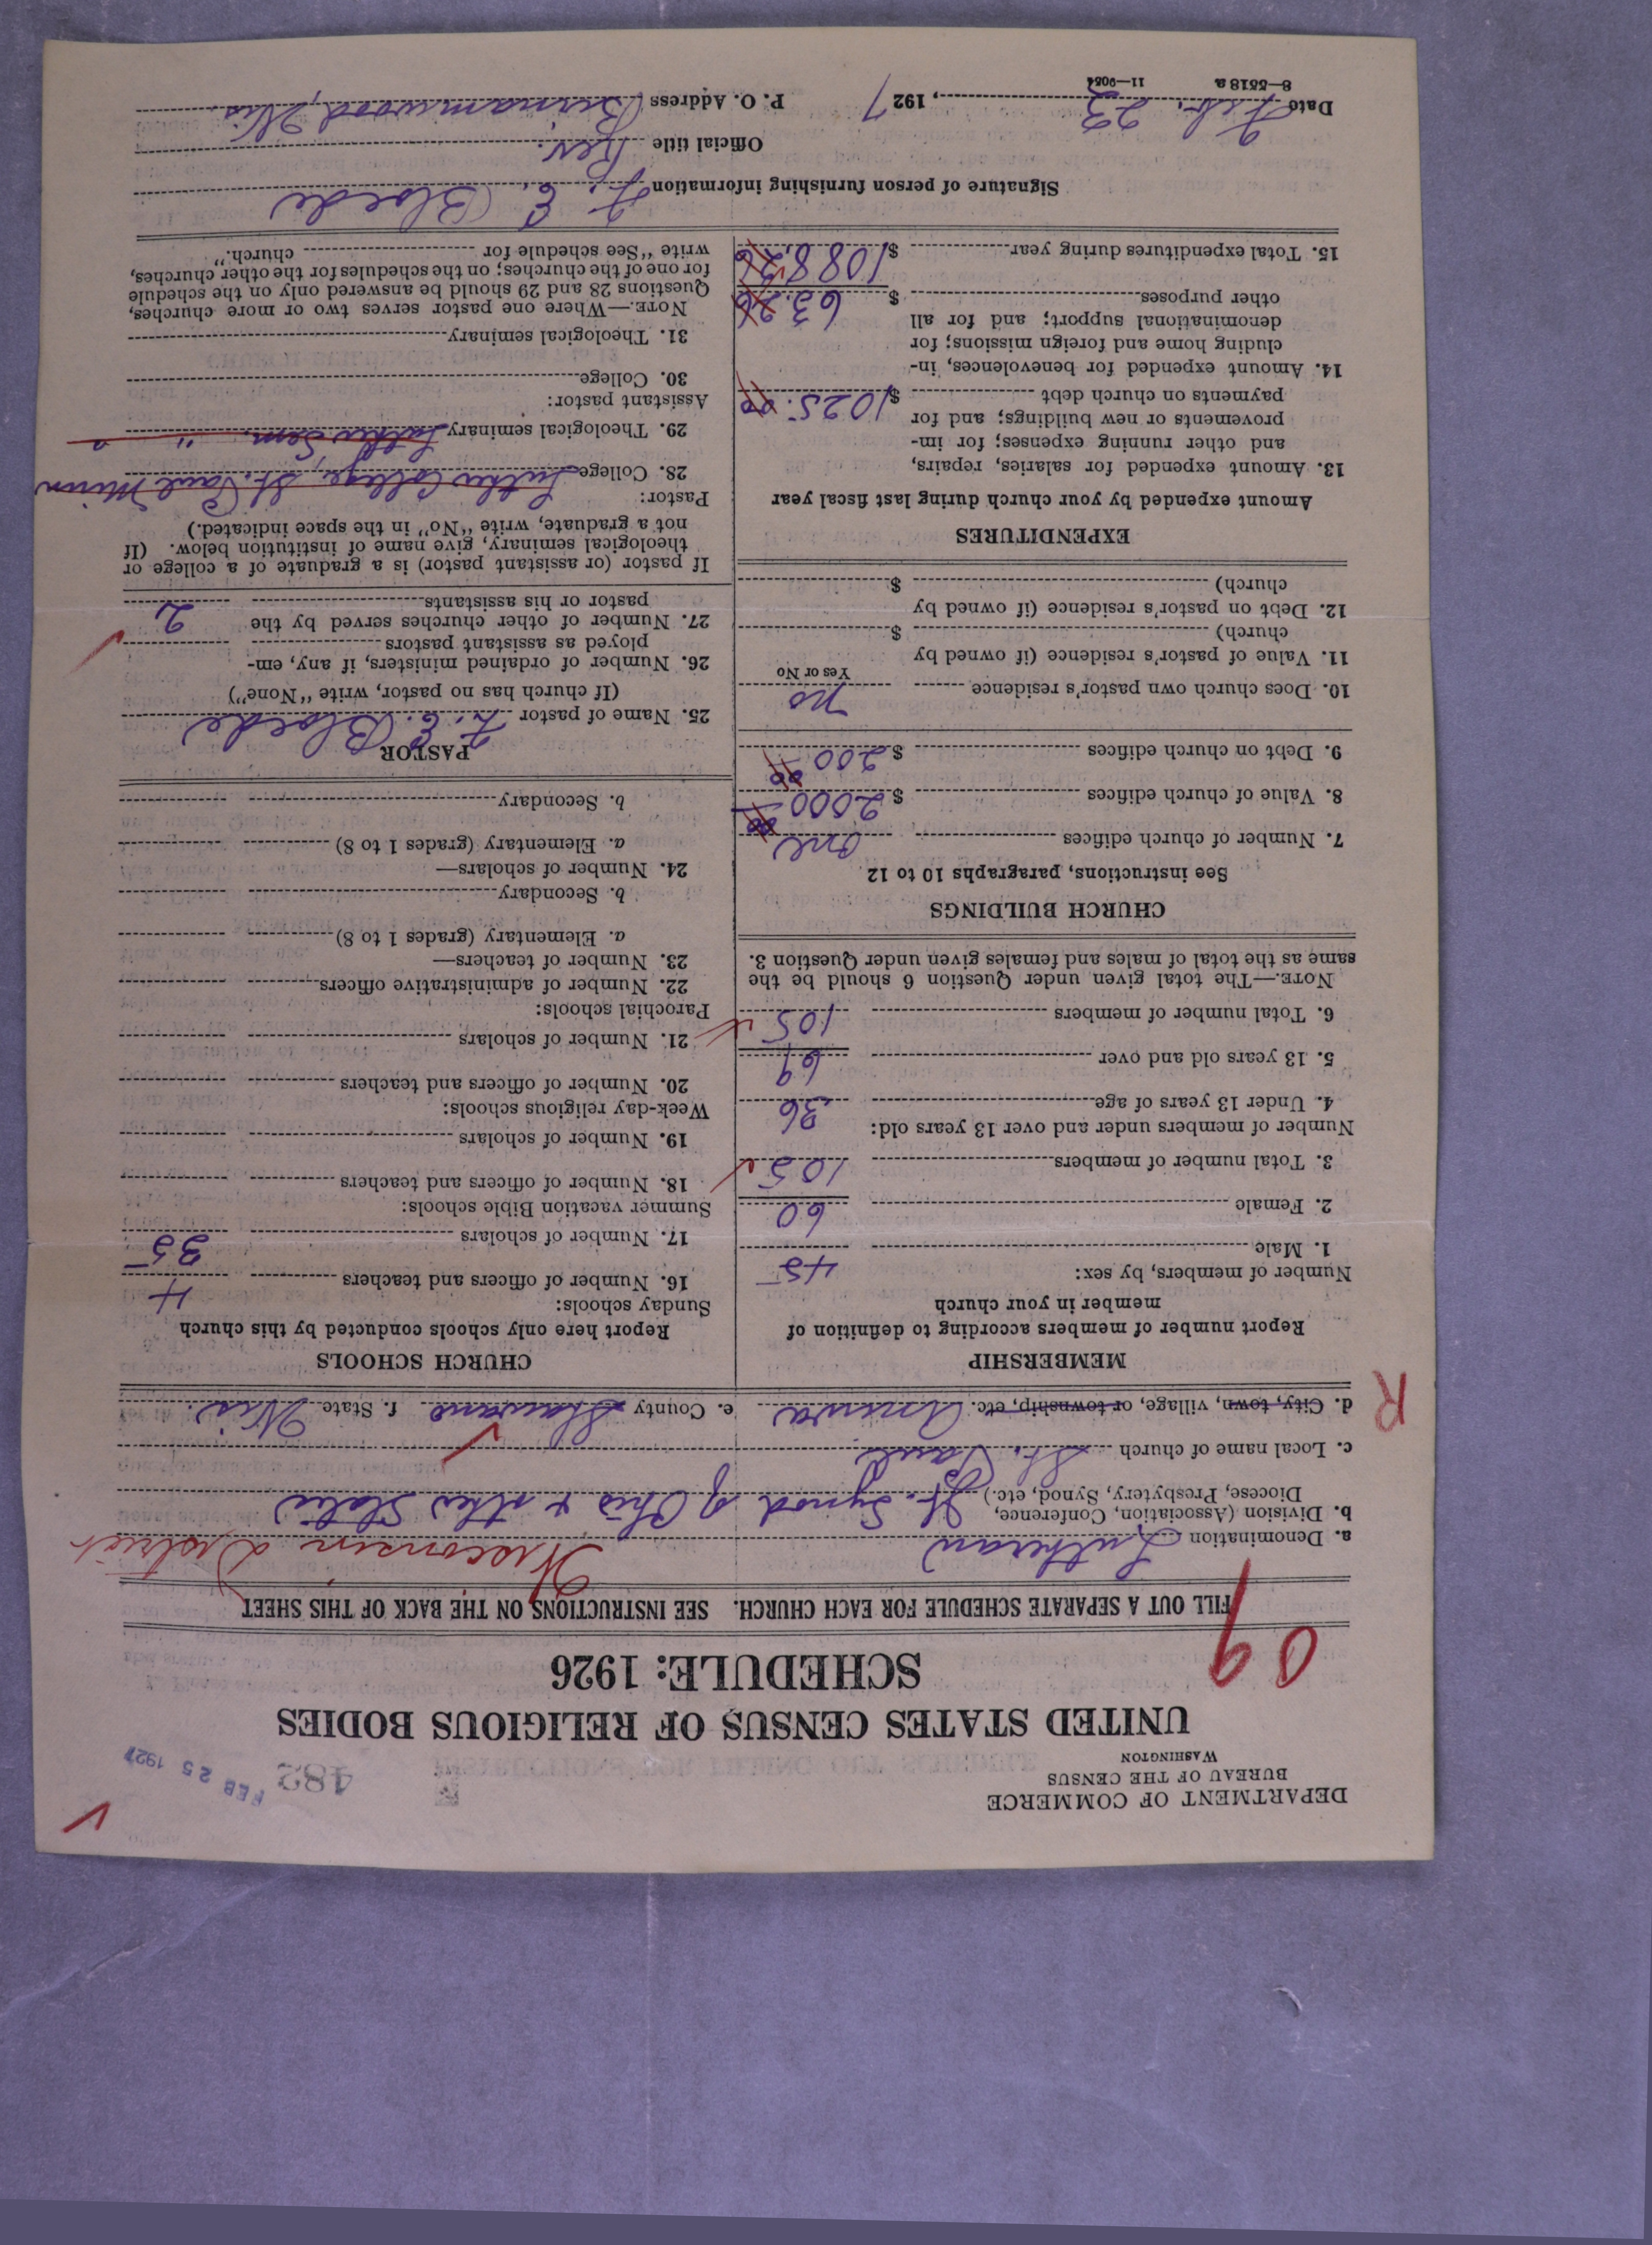 DEPARTMENT OF COMMERCE
BUREAU OF THE CENSUS
WASHINGTON
482
FEB 25 1927
UNITED STATES CENSUS OF RELIGIOUS BODIES
SCHEDULE: 1926
09
FILL OUT A SEPARATE SCHEDULE FOR EACH CHURCH. SEE INSTRUCTIONS ON THE BACK OF THIS SHEET
a. Denomination Lutheran Wisconsin District
b. Division (Association, Conference,
Diocese, Presbytery, Synod, etc.) Jt. Synod of Ohio & other States
c. Local name of church St. Paul
R
d. City, town, village, or township, etc. Aniwa e. County Shawano f. State Wis.
MEMBERSHIP
Report number of members according to definition of
member in your church
Number of members, by sex:
1. Male 45
2. Female 60
3. Total number of members 105
Number of members under and over 13 years old:
4. Under 13 years of age 36
5. 13 years old and over 69
6. Total number of members 105
NOTE.—The total given under Question 6 should be the
same as the total of males and females given under Question 3.
CHURCH BUILDINGS
See instructions, paragraphs 10 to 12
7. Number of church edifices one
8. Value of church edifices $ 2000 00
9. Debt on church edifices $ 200 00
10. Does church own pastor's residence no
Yes or No
11. Value of pastor's residence (if owned by
church) $
12. Debt on pastor's residence (if owned by
church) $
EXPENDITURES
Amount expended by your church during last fiscal year
13. Amount expended for salaries, repairs,
and other running expenses; for im-
provements or new buildings; and for
payments on church debt $ 1025.00
14. Amount expended for benevolences, in-
cluding home and foreign missions; for
denominational support; and for all
other purposes $ 63.26
15. Total expenditures during year $ 1088.26
CHURCH SCHOOLS
Report here only schools conducted by this church
Sunday schools:
16. Number of officers and teachers 4
17. Number of scholars 35
Summer vacation Bible schools:
18. Number of officers and teachers
19. Number of scholars
Week-day religious schools:
20. Number of officers and teachers
21. Number of scholars
Parochial schools:
22. Number of administrative officers
23. Number of teachers—
a. Elementary (grades 1 to 8)
b. Secondary
24. Number of scholars—
a. Elementary (grades 1 to 8)
b. Secondary
PASTOR
25. Name of pastor F. E. Bloede
(If church has no pastor, write "None")
26. Number of ordained ministers, if any, em-
ployed as assistant pastors
27. Number of other churches served by the
pastor or his assistants 2
If pastor (or assistant pastor) is a graduate of a college or
theological seminary, give name of institution below. (If
not a graduate, write "No" in the space indicated.)
Pastor:
28. College Luther College, St. Paul Minn
29. Theological seminary Luther Sem. " "
Assistant pastor:
30. College
31. Theological seminary
NOTE.—Where one pastor serves two or more churches,
Questions 28 and 29 should be answered only on the schedule
for one of the churches; on the schedules for the other churches,
write "See schedule for church."
Signature of person furnishing information F. E. Bloede
Official title Rev.
Date Feb. 23, 1927 P. O. Address Birnamwood, Wis.
8—5518 a 11—9054